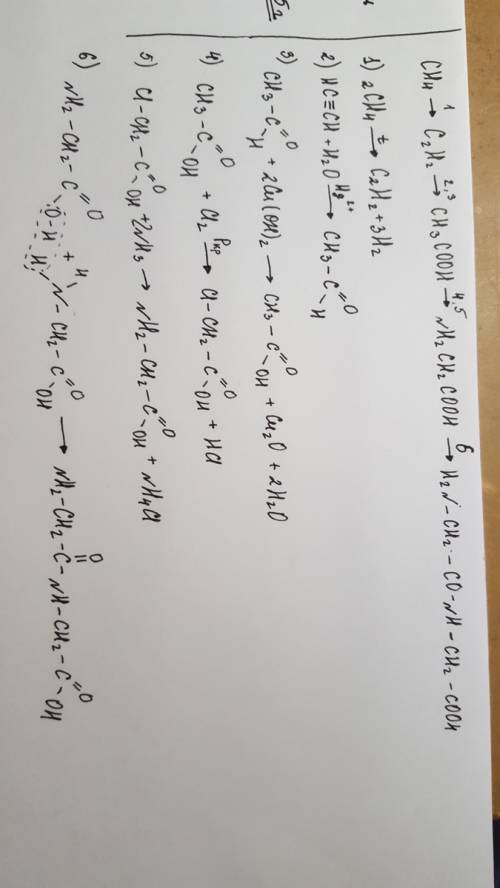 CH4 →1 C2H2 →2,3 CH3COOH →4,5 NH2CH2COOH →6 H2N-CH2-CO-NH-CH2-COOH
1) 2CH4 →t C2H2 + 3H2
2) HC≡CH + H2O →Hg2+ CH3-C=O H
3) CH3-C=O H + 2Cu(OH)2 → CH3-C=O OH + Cu2O + 2H2O
4) CH3-C=O OH + Cl2 →Pкр Cl-CH2-C=O OH + HCl
5) Cl-CH2-C=O OH + 2NH3 → NH2-CH2-C=O OH + NH4Cl
6) NH2-CH2-C=O O-H + H H N-CH2-C=O OH → NH2-CH2-C=O-NH-CH2-C=O OH